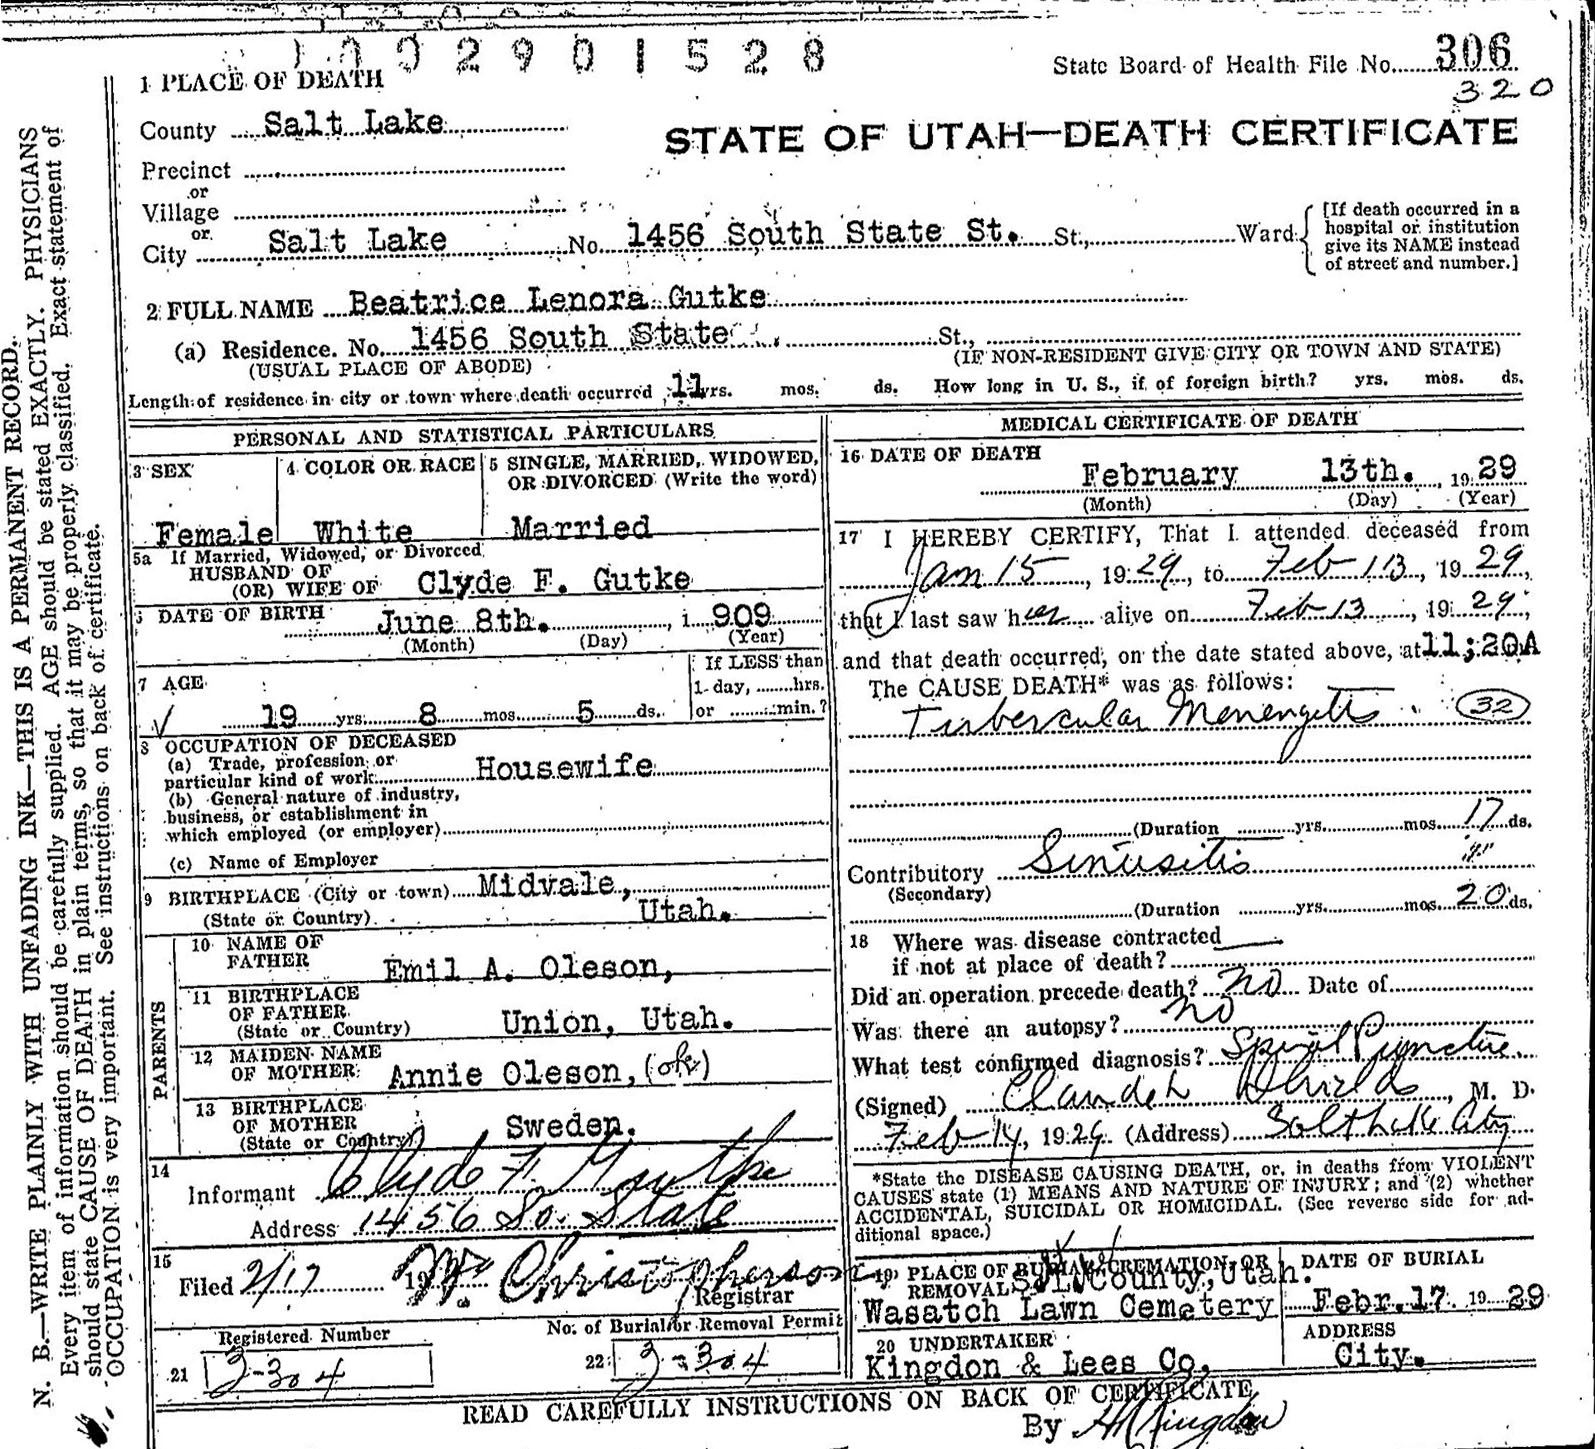 1002901528
State Board of Health File No. 306
320
1 PLACE OF DEATH
County Salt Lake
STATE OF UTAH—DEATH CERTIFICATE
Precinct
or
Village
or
City Salt Lake No. 1456 South State St. St., Ward
[If death occurred in a hospital or institution give its NAME instead of street and number.]
2 FULL NAME Beatrice Lenora Gutke
(a) Residence. No. 1456 South State St.,
(USUAL PLACE OF ABODE) (IF NON-RESIDENT GIVE CITY OR TOWN AND STATE)
Length of residence in city or town where death occurred 11 yrs. mos. ds. How long in U. S., if of foreign birth? yrs. mos. ds.
PERSONAL AND STATISTICAL PARTICULARS
3 SEX
Female
4 COLOR OR RACE
White
5 SINGLE, MARRIED, WIDOWED,
OR DIVORCED (Write the word)
Married
5a If Married, Widowed, or Divorced
HUSBAND OF
(OR) WIFE OF Clyde F. Gutke
DATE OF BIRTH June 8th. , 1 909
(Month) (Day) (Year)
7 AGE
19 yrs. 8 mos. 5 ds.
If LESS than
1 day, hrs.
or min.?
8 OCCUPATION OF DECEASED
(a) Trade, profession or
particular kind of work Housewife
(b) General nature of industry,
business, or establishment in
which employed (or employer)
(c) Name of Employer
9 BIRTHPLACE (City or town) Midvale,
(State or Country) Utah.
PARENTS
10 NAME OF
FATHER Emil A. Oleson,
11 BIRTHPLACE
OF FATHER
(State or Country) Union, Utah.
12 MAIDEN NAME
OF MOTHER Annie Oleson, (ok)
13 BIRTHPLACE
OF MOTHER
(State or Country) Sweden.
14
Informant Clyde F. Gutke
Address 1456 So. State
15
Filed 2/17 19 Christopherson
Registrar
Registered Number
21 2-304
No. of Burial or Removal Permit
22 2-304
MEDICAL CERTIFICATE OF DEATH
16 DATE OF DEATH
February 13th. , 19 29
(Month) (Day) (Year)
17 I HEREBY CERTIFY, That I attended deceased from
Jan 15 , 19 29, to Feb 13, 19 29,
that I last saw her alive on Feb 13 , 19 29,
and that death occurred, on the date stated above, at 11;20A
The CAUSE DEATH* was as follows:
Tubercular Menengitis 32
(Duration yrs. mos. 17 ds.
Contributory Sinusitis
(Secondary)
(Duration yrs. mos. 20 ds.
18 Where was disease contracted
if not at place of death?
Did an operation precede death? no Date of
Was there an autopsy? no
What test confirmed diagnosis? Spinal Puncture
(Signed) Shields , M. D.
Feb 14, 1929. (Address) Salt Lake City
*State the DISEASE CAUSING DEATH, or, in deaths from VIOLENT
CAUSES state (1) MEANS AND NATURE OF INJURY; and (2) whether
ACCIDENTAL, SUICIDAL OR HOMICIDAL. (See reverse side for ad-
ditional space.)
19 PLACE OF BURIAL, CREMATION, OR
REMOVAL S. L. County, Utah.
Wasatch Lawn Cemetery
DATE OF BURIAL
Febr. 17 19 29
20 UNDERTAKER
Kingdon & Lees Co,
ADDRESS
City.
READ CAREFULLY INSTRUCTIONS ON BACK OF CERTIFICATE
By Kingdon
N. B.—WRITE PLAINLY WITH UNFADING INK—THIS IS A PERMANENT RECORD.
Every item of information should be carefully supplied. AGE should be stated EXACTLY. PHYSICIANS
should state CAUSE OF DEATH in plain terms, so that it may be properly classified. Exact statement of
OCCUPATION is very important. See instructions on back of certificate.